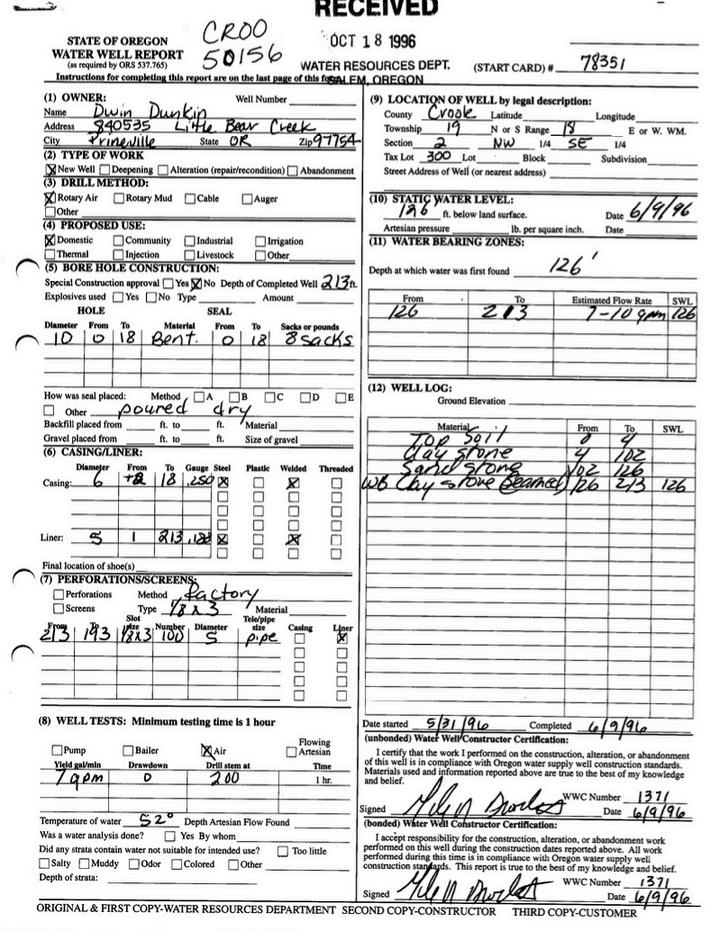 RECEIVED
CROO
50156
OCT 18 1996
STATE OF OREGON
WATER WELL REPORT
(as required by ORS 537.765)
WATER RESOURCES DEPT.
SALEM, OREGON
(START CARD) # 78351
Instructions for completing this report are on the last page of this form.
(1) OWNER: Well Number
Name Dwin Dunkin
Address 840535 Little Bear Creek
City Prineville State OR Zip 97754
(2) TYPE OF WORK
New Well Deepening Alteration (repair/recondition) Abandonment
(3) DRILL METHOD:
Rotary Air Rotary Mud Cable Auger
Other
(4) PROPOSED USE:
Domestic Community Industrial Irrigation
Thermal Injection Livestock Other
(5) BORE HOLE CONSTRUCTION:
Special Construction approval Yes No Depth of Completed Well 213 ft.
Explosives used Yes No Type Amount
HOLE SEAL
Diameter From To Material From To Sacks or pounds
10 0 18 Bent. 0 18 8 sacks
How was seal placed: Method A B C D E
Other poured dry
Backfill placed from ft. to ft. Material
Gravel placed from ft. to ft. Size of gravel
(6) CASING/LINER:
Diameter From To Gauge Steel Plastic Welded Threaded
Casing: 6 +2 18 .250
Liner: 5 1 213 .188
Final location of shoe(s)
(7) PERFORATIONS/SCREENS:
Perforations Method factory
Screens Type 1/8 x 3 Material
From To Slot size Number Diameter Tele/pipe size Casing Liner
213 193 1/8x3 100 5 pipe
(8) WELL TESTS: Minimum testing time is 1 hour
Pump Bailer Air Flowing Artesian
Yield gal/min Drawdown Drill stem at Time
7 gpm 0 200 1 hr.
Temperature of water 52° Depth Artesian Flow Found
Was a water analysis done? Yes By whom
Did any strata contain water not suitable for intended use? Too little
Salty Muddy Odor Colored Other
Depth of strata:
(9) LOCATION OF WELL by legal description:
County Crook Latitude Longitude
Township 19 N or S Range 18 E or W. WM.
Section 2 NW 1/4 SE 1/4
Tax Lot 300 Lot Block Subdivision
Street Address of Well (or nearest address)
(10) STATIC WATER LEVEL:
126 ft. below land surface. Date 6/9/96
Artesian pressure lb. per square inch. Date
(11) WATER BEARING ZONES:
Depth at which water was first found 126'
From To Estimated Flow Rate SWL
126 213 7-10 gpm 126
(12) WELL LOG:
Ground Elevation
Material From To SWL
Top Soil 0 4
Clay stone 4 102
Sand stone 102 126
WB Clay stone (Seamed) 126 213 126
Date started 5/31/96 Completed 6/9/96
(unbonded) Water Well Constructor Certification:
I certify that the work I performed on the construction, alteration, or abandonment
of this well is in compliance with Oregon water supply well construction standards.
Materials used and information reported above are true to the best of my knowledge
and belief.
WWC Number 1371
Signed Date 6/9/96
(bonded) Water Well Constructor Certification:
I accept responsibility for the construction, alteration, or abandonment work
performed on this well during the construction dates reported above. All work
performed during this time is in compliance with Oregon water supply well
construction standards. This report is true to the best of my knowledge and belief.
WWC Number 1371
Signed Date 6/9/96
ORIGINAL & FIRST COPY-WATER RESOURCES DEPARTMENT SECOND COPY-CONSTRUCTOR THIRD COPY-CUSTOMER